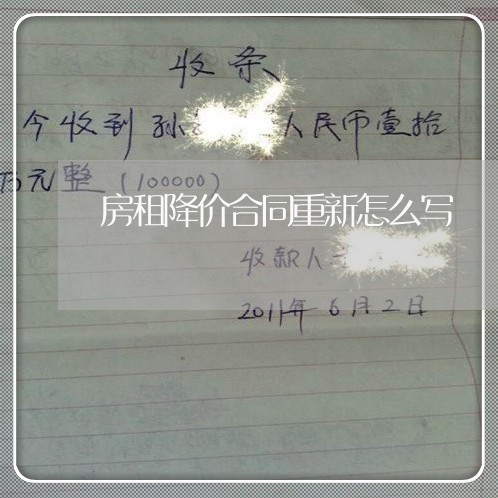 收条
今收到孙 人民币壹拾
万元整(100000)
房租降价合同重新怎么写
收款人
2011年6月2日